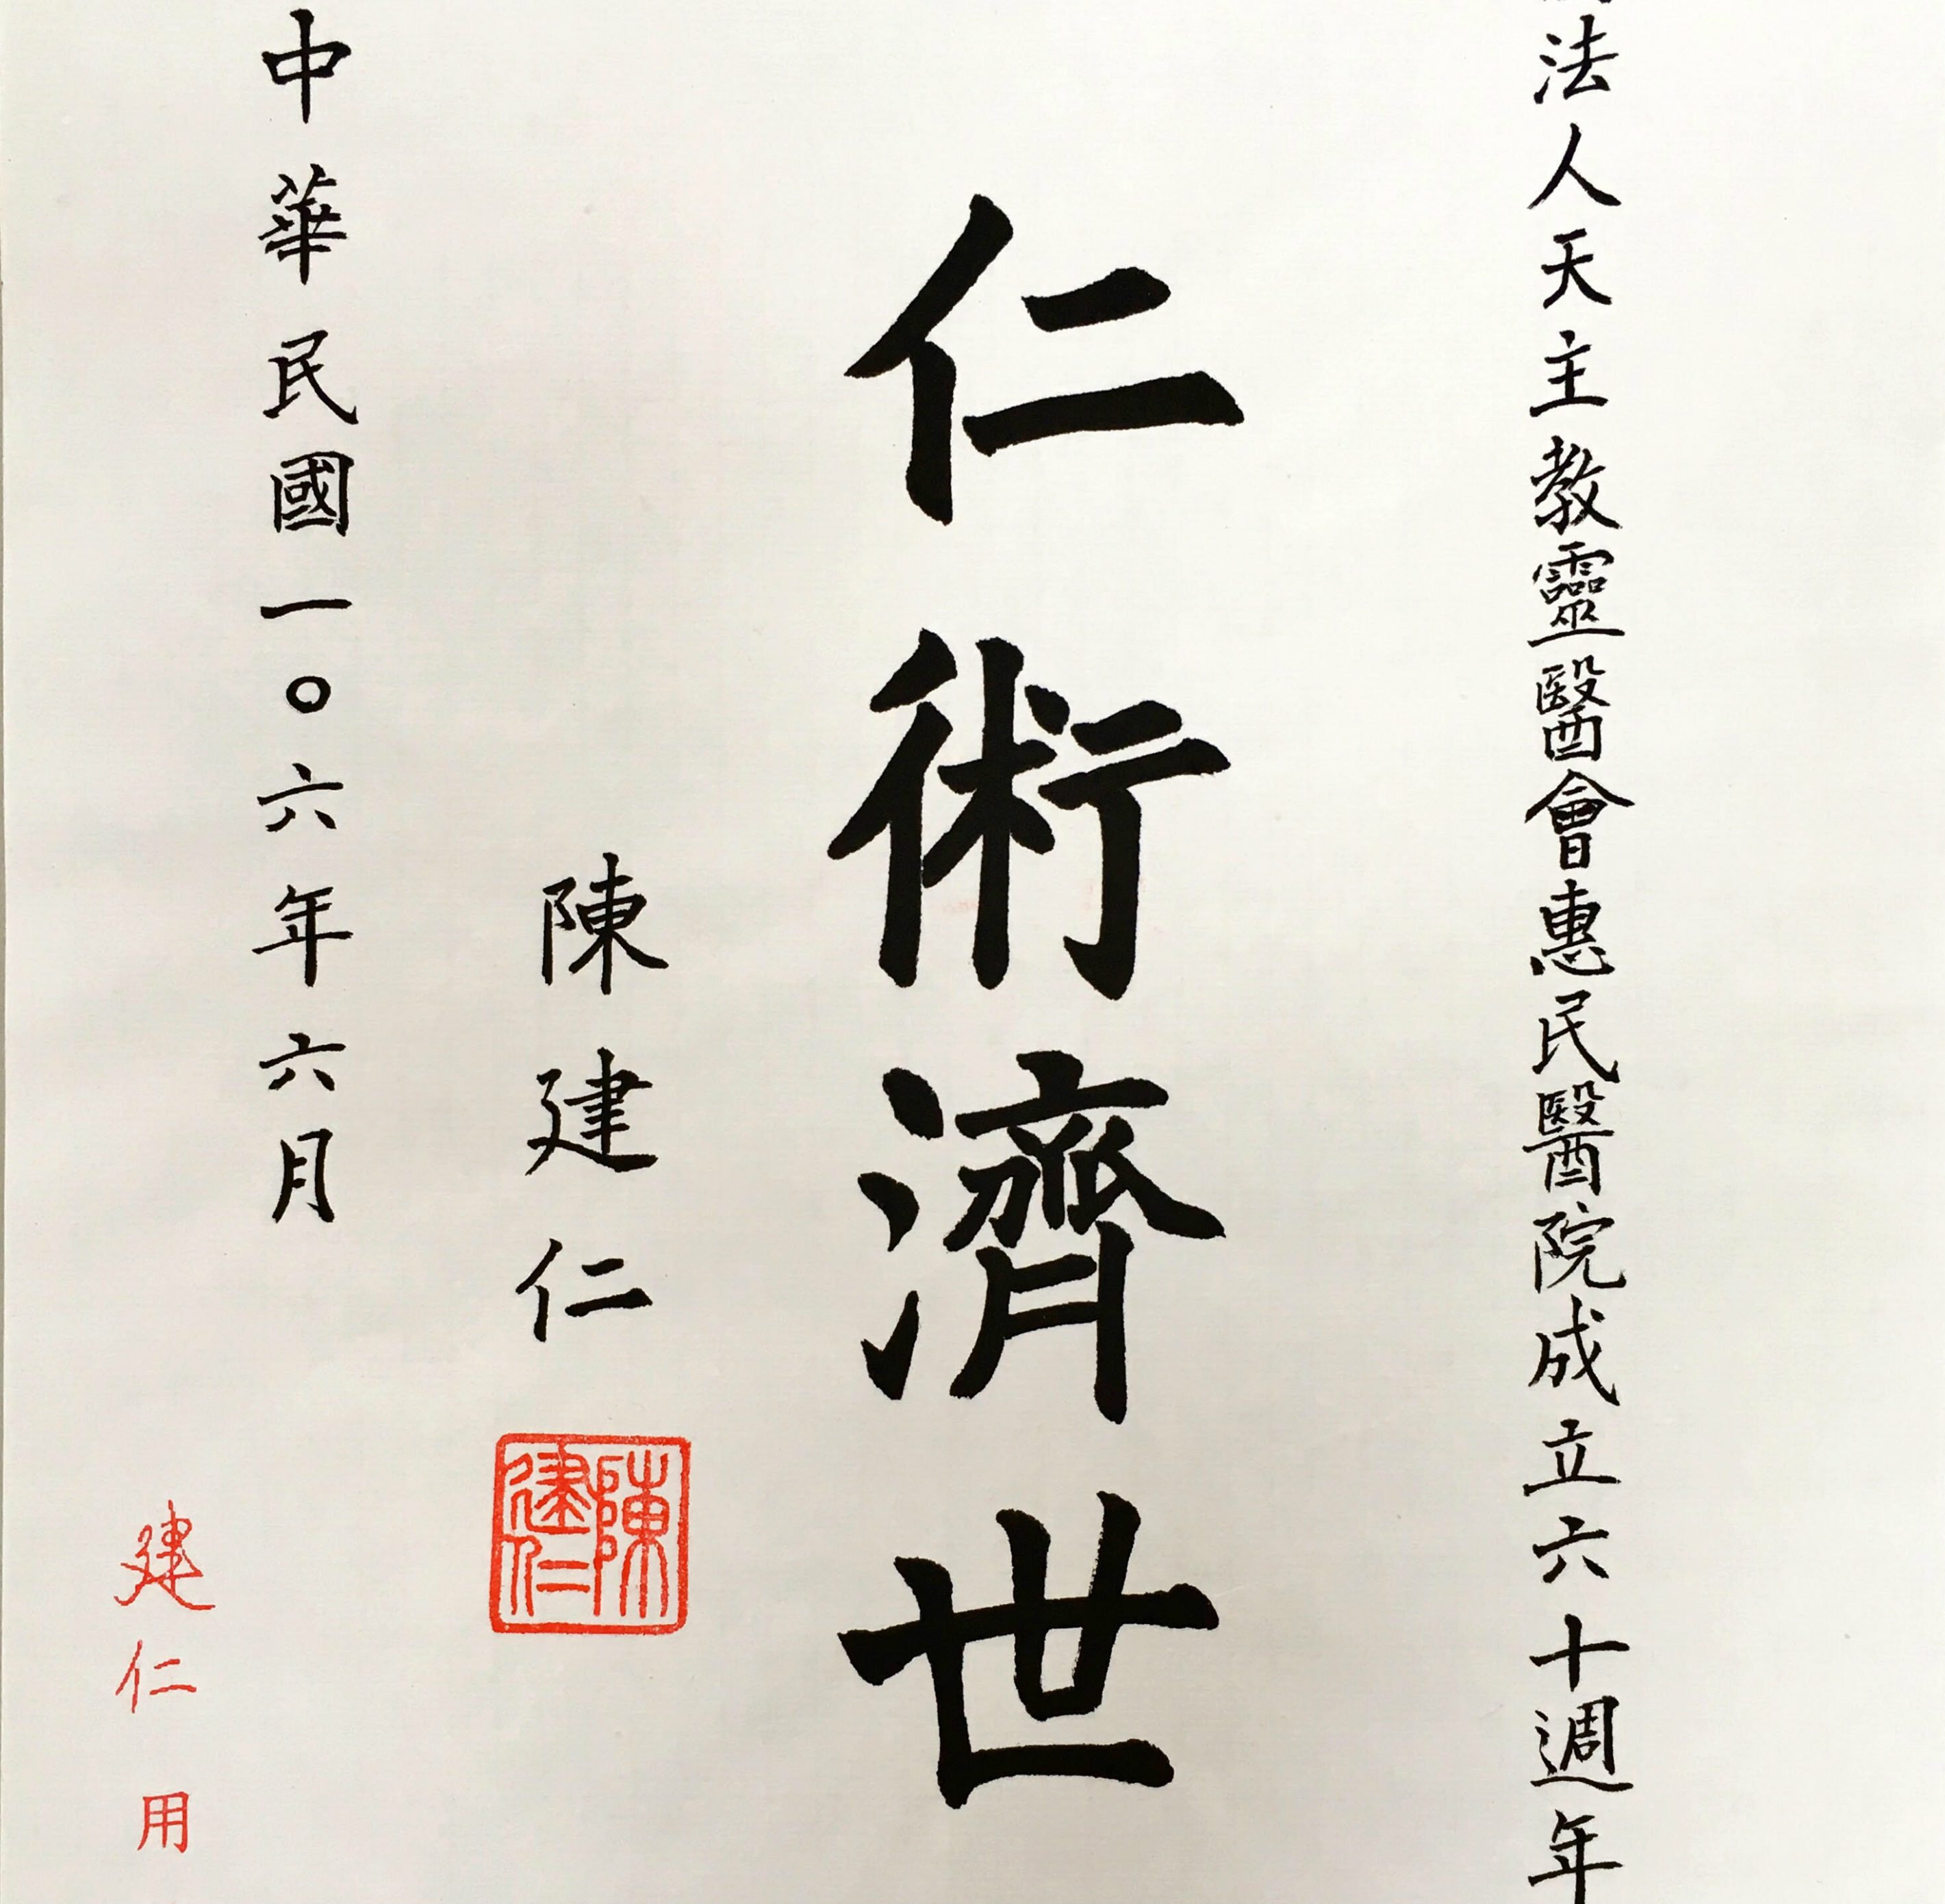 法人天主教靈醫會惠民醫院成立六十週年
仁術濟世
陳建仁
陳建仁
中華民國一〇六年六月
建仁用